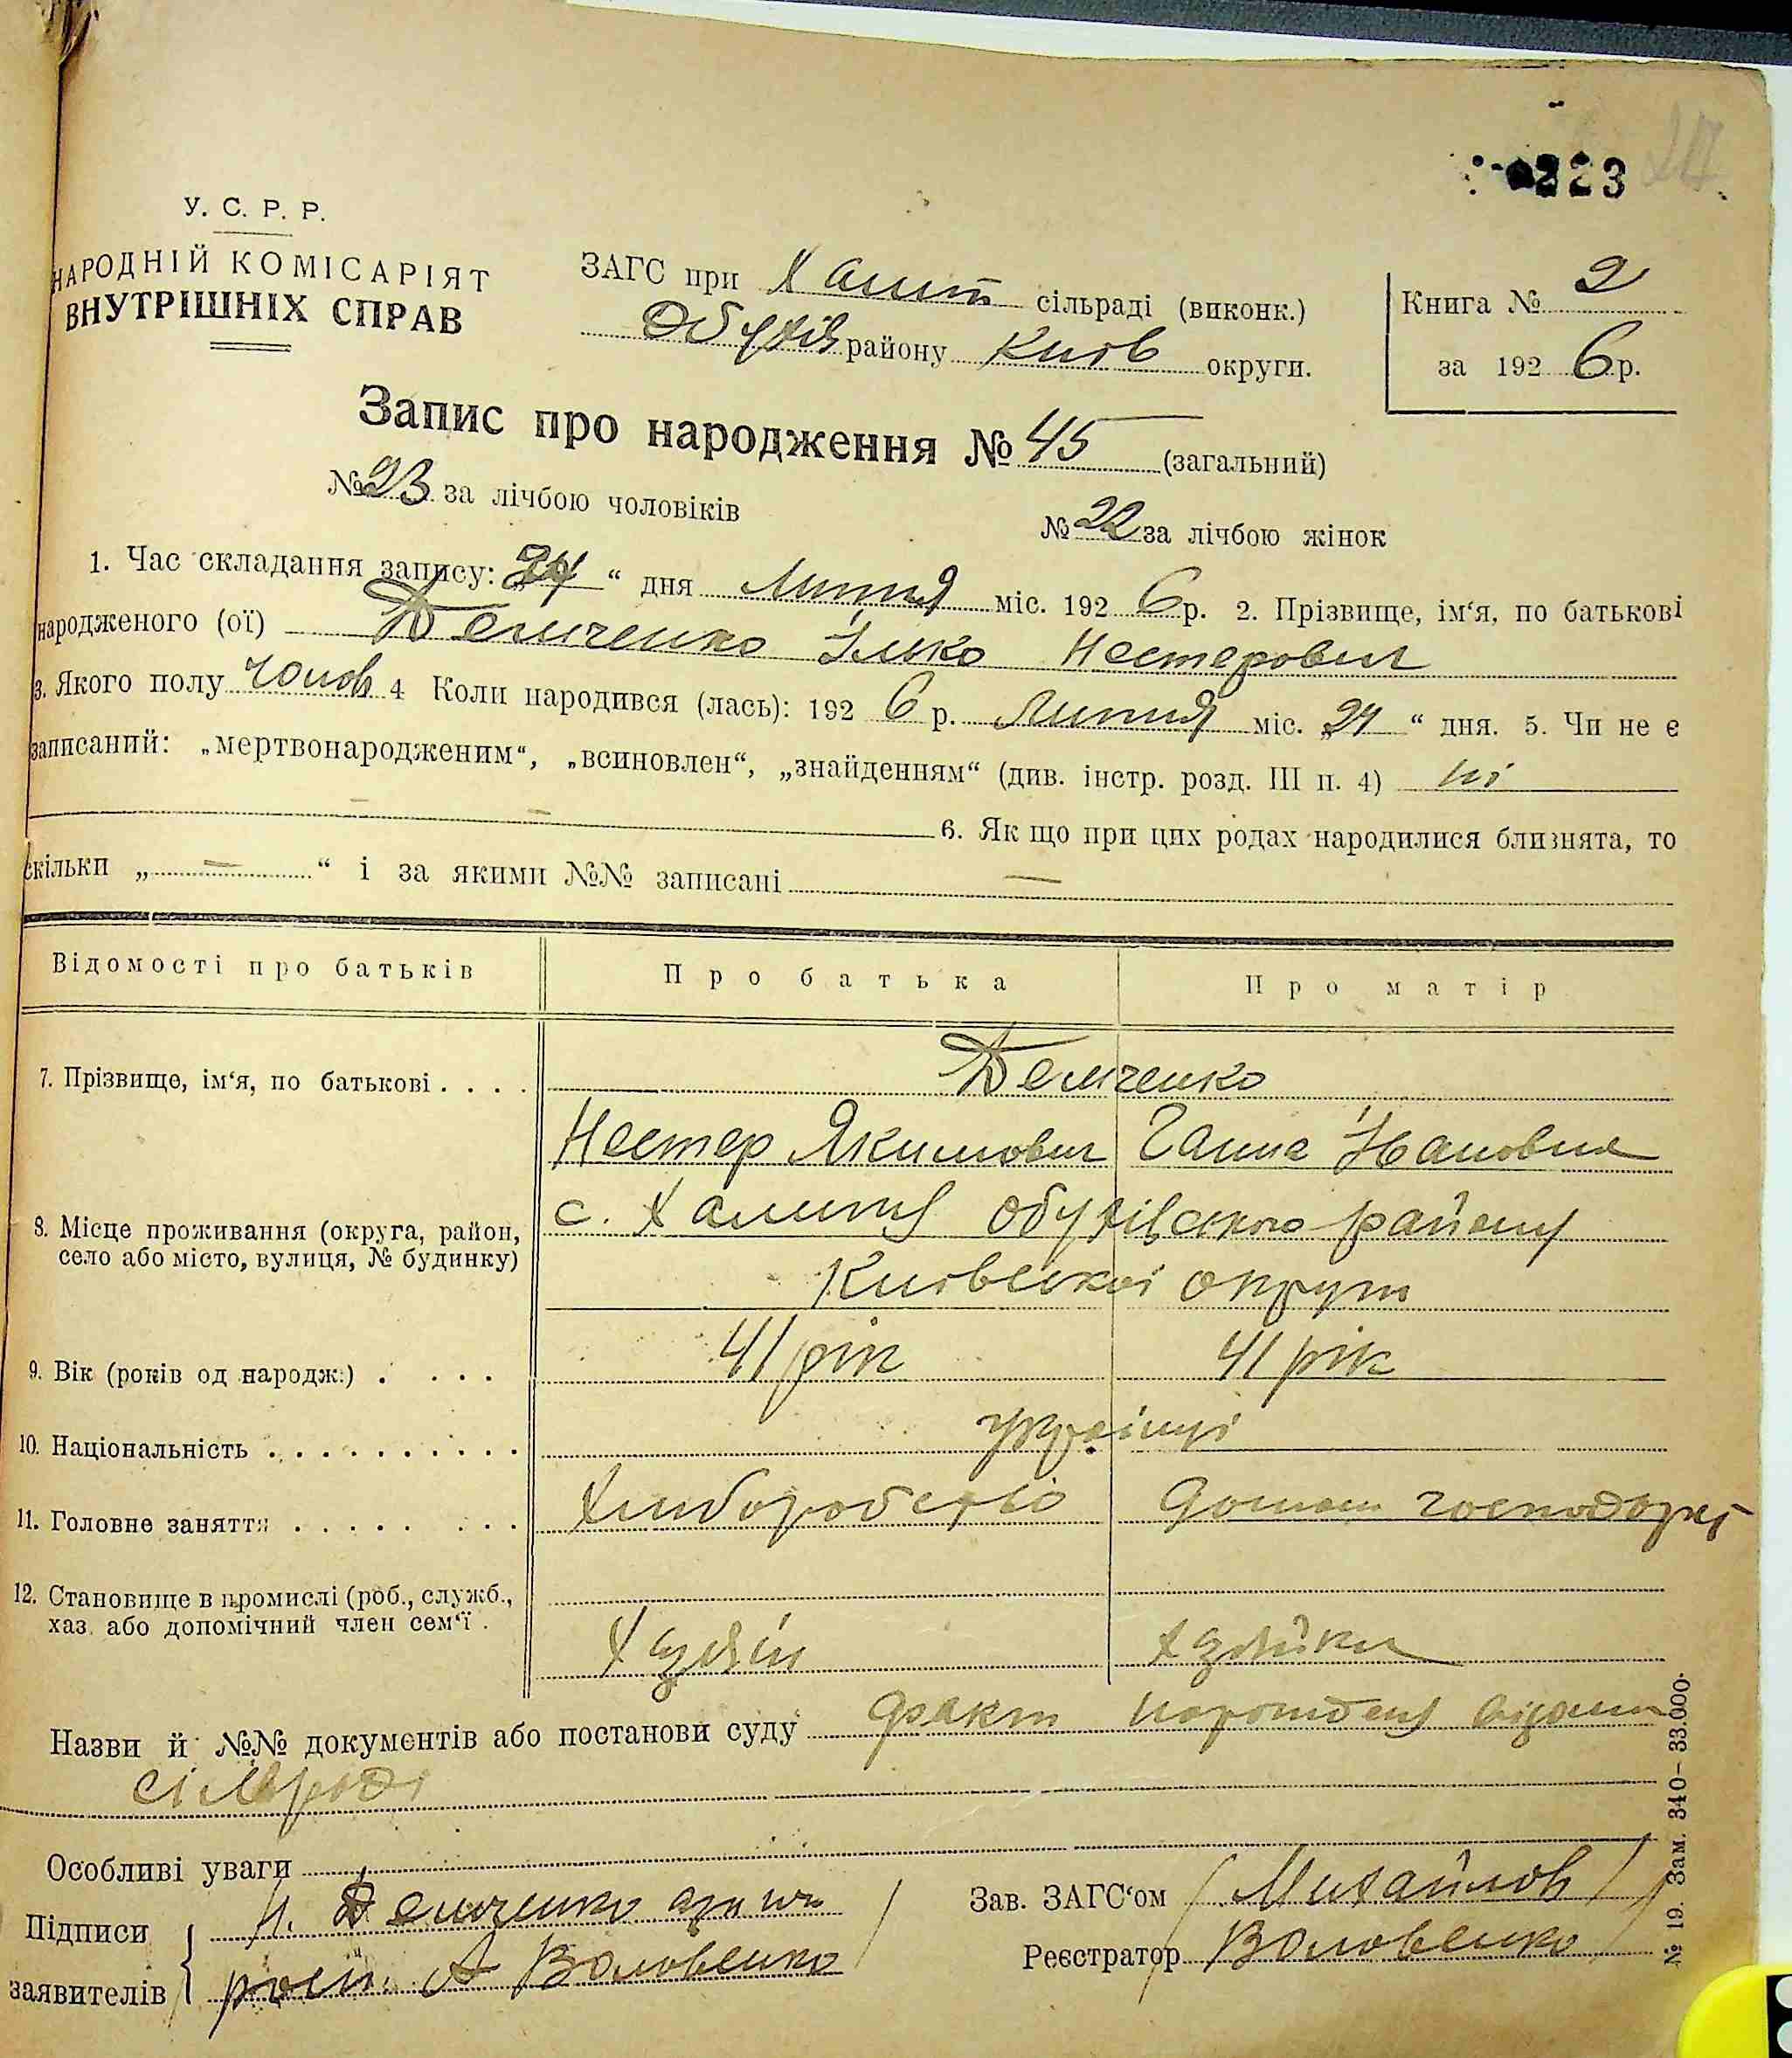 223
У. С. Р. Р.
НАРОДНІЙ КОМІСАРІЯТ
ВНУТРІШНІХ СПРАВ
ЗАГС при Халип сільраді (виконк.)
Обухів району Київ округи.
Книга № 2
за 1926 р.
Запис про народження № 45 (загальний)
№ 23 за лічбою чоловіків
№ 22 за лічбою жінок
1. Час складання запису: „24“ дня Липня міс. 1926 р. 2. Прізвище, ім‘я, по батькові
народженого (ої) Демченко Ілько Нестерович
3. Якого полу чолов 4 Коли народився (лась): 1926 р. Липня міс. „24“ дня. 5. Чи не є
записаний: „мертвонародженим“, „всиновлен“, „знайденням“ (див. інстр. розд. III п. 4) ні
6. Як що при цих родах народилися близнята, то
скільки „ — “ і за якими №№ записані —
Відомості про батьків
Про батька
Про матір
7. Прізвище, ім‘я, по батькові . . . .
Демченко
Нестер Якимович
Ганна Івановна
8. Місце проживання (округа, район,
село або місто, вулиця, № будинку)
с. Халипя Обухівського району
Київської округи
9. Вік (років од народж.) . . . .
41 рік
41 рік
10. Національність . . . . . . . . . .
українці
11. Головне заняття . . . . . . . .
Хліборобство
Домаш господарст
12. Становище в промислі (роб., служб.,
хаз. або допомічний член сем‘ї .
Хазяїн
Хазяйка
Назви й №№ документів або постанови суду факт народженя відомий
сільраді
Особливі уваги
Підписи
заявителів
Н. Демченко
росп. А Воловенко
Зав. ЗАГС‘ом Михайлов
Реєстратор Воловенко
№ 19. Зам. 340—33.000.